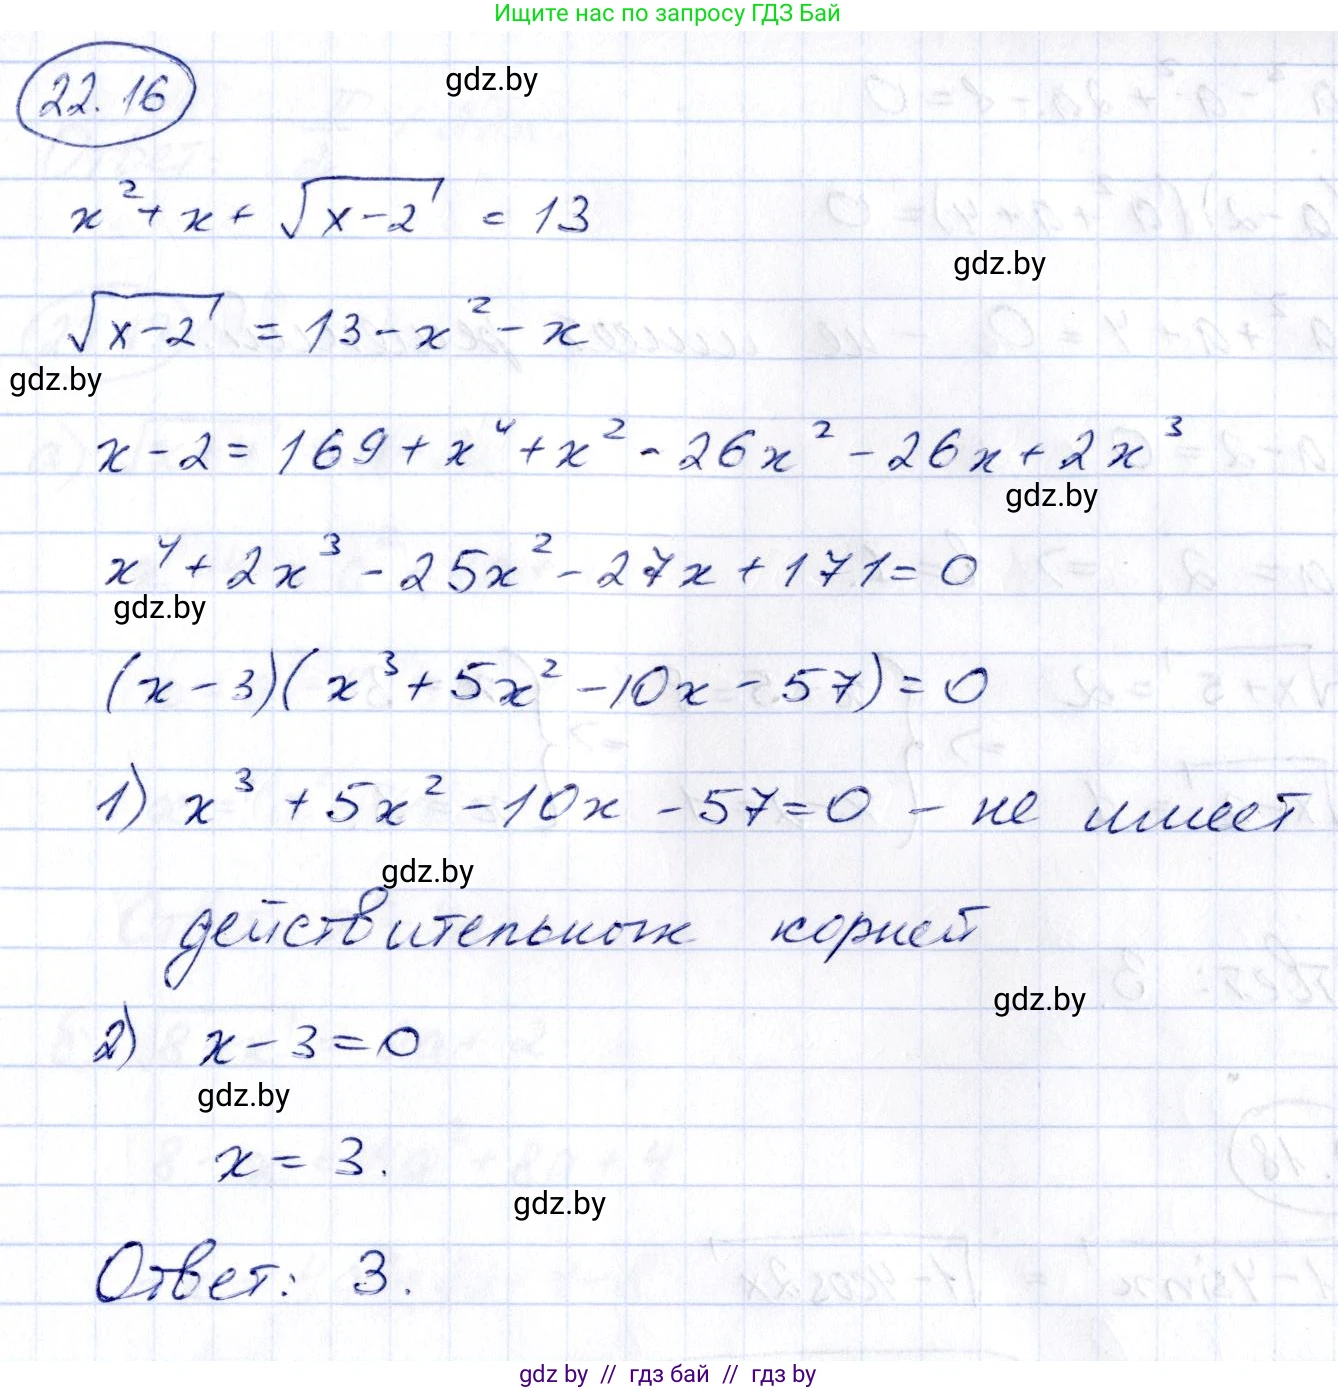 Ищите нас по запросу ГДЗ Бай
22.16
gdz.by
x² + x + √(x-2) = 13
gdz.by
√(x-2) = 13 - x² - x
gdz.by
x - 2 = 169 + x⁴ + x² - 26x² - 26x + 2x³
gdz.by
x⁴ + 2x³ - 25x² - 27x + 171 = 0
gdz.by
(x - 3)(x³ + 5x² - 10x - 57) = 0
1) x³ + 5x² - 10x - 57 = 0 - не имеет
gdz.by
действительных корней
gdz.by
2) x - 3 = 0
gdz.by
x = 3.
gdz.by
Ответ: 3.
gdz.by // гдз бай // гдз by